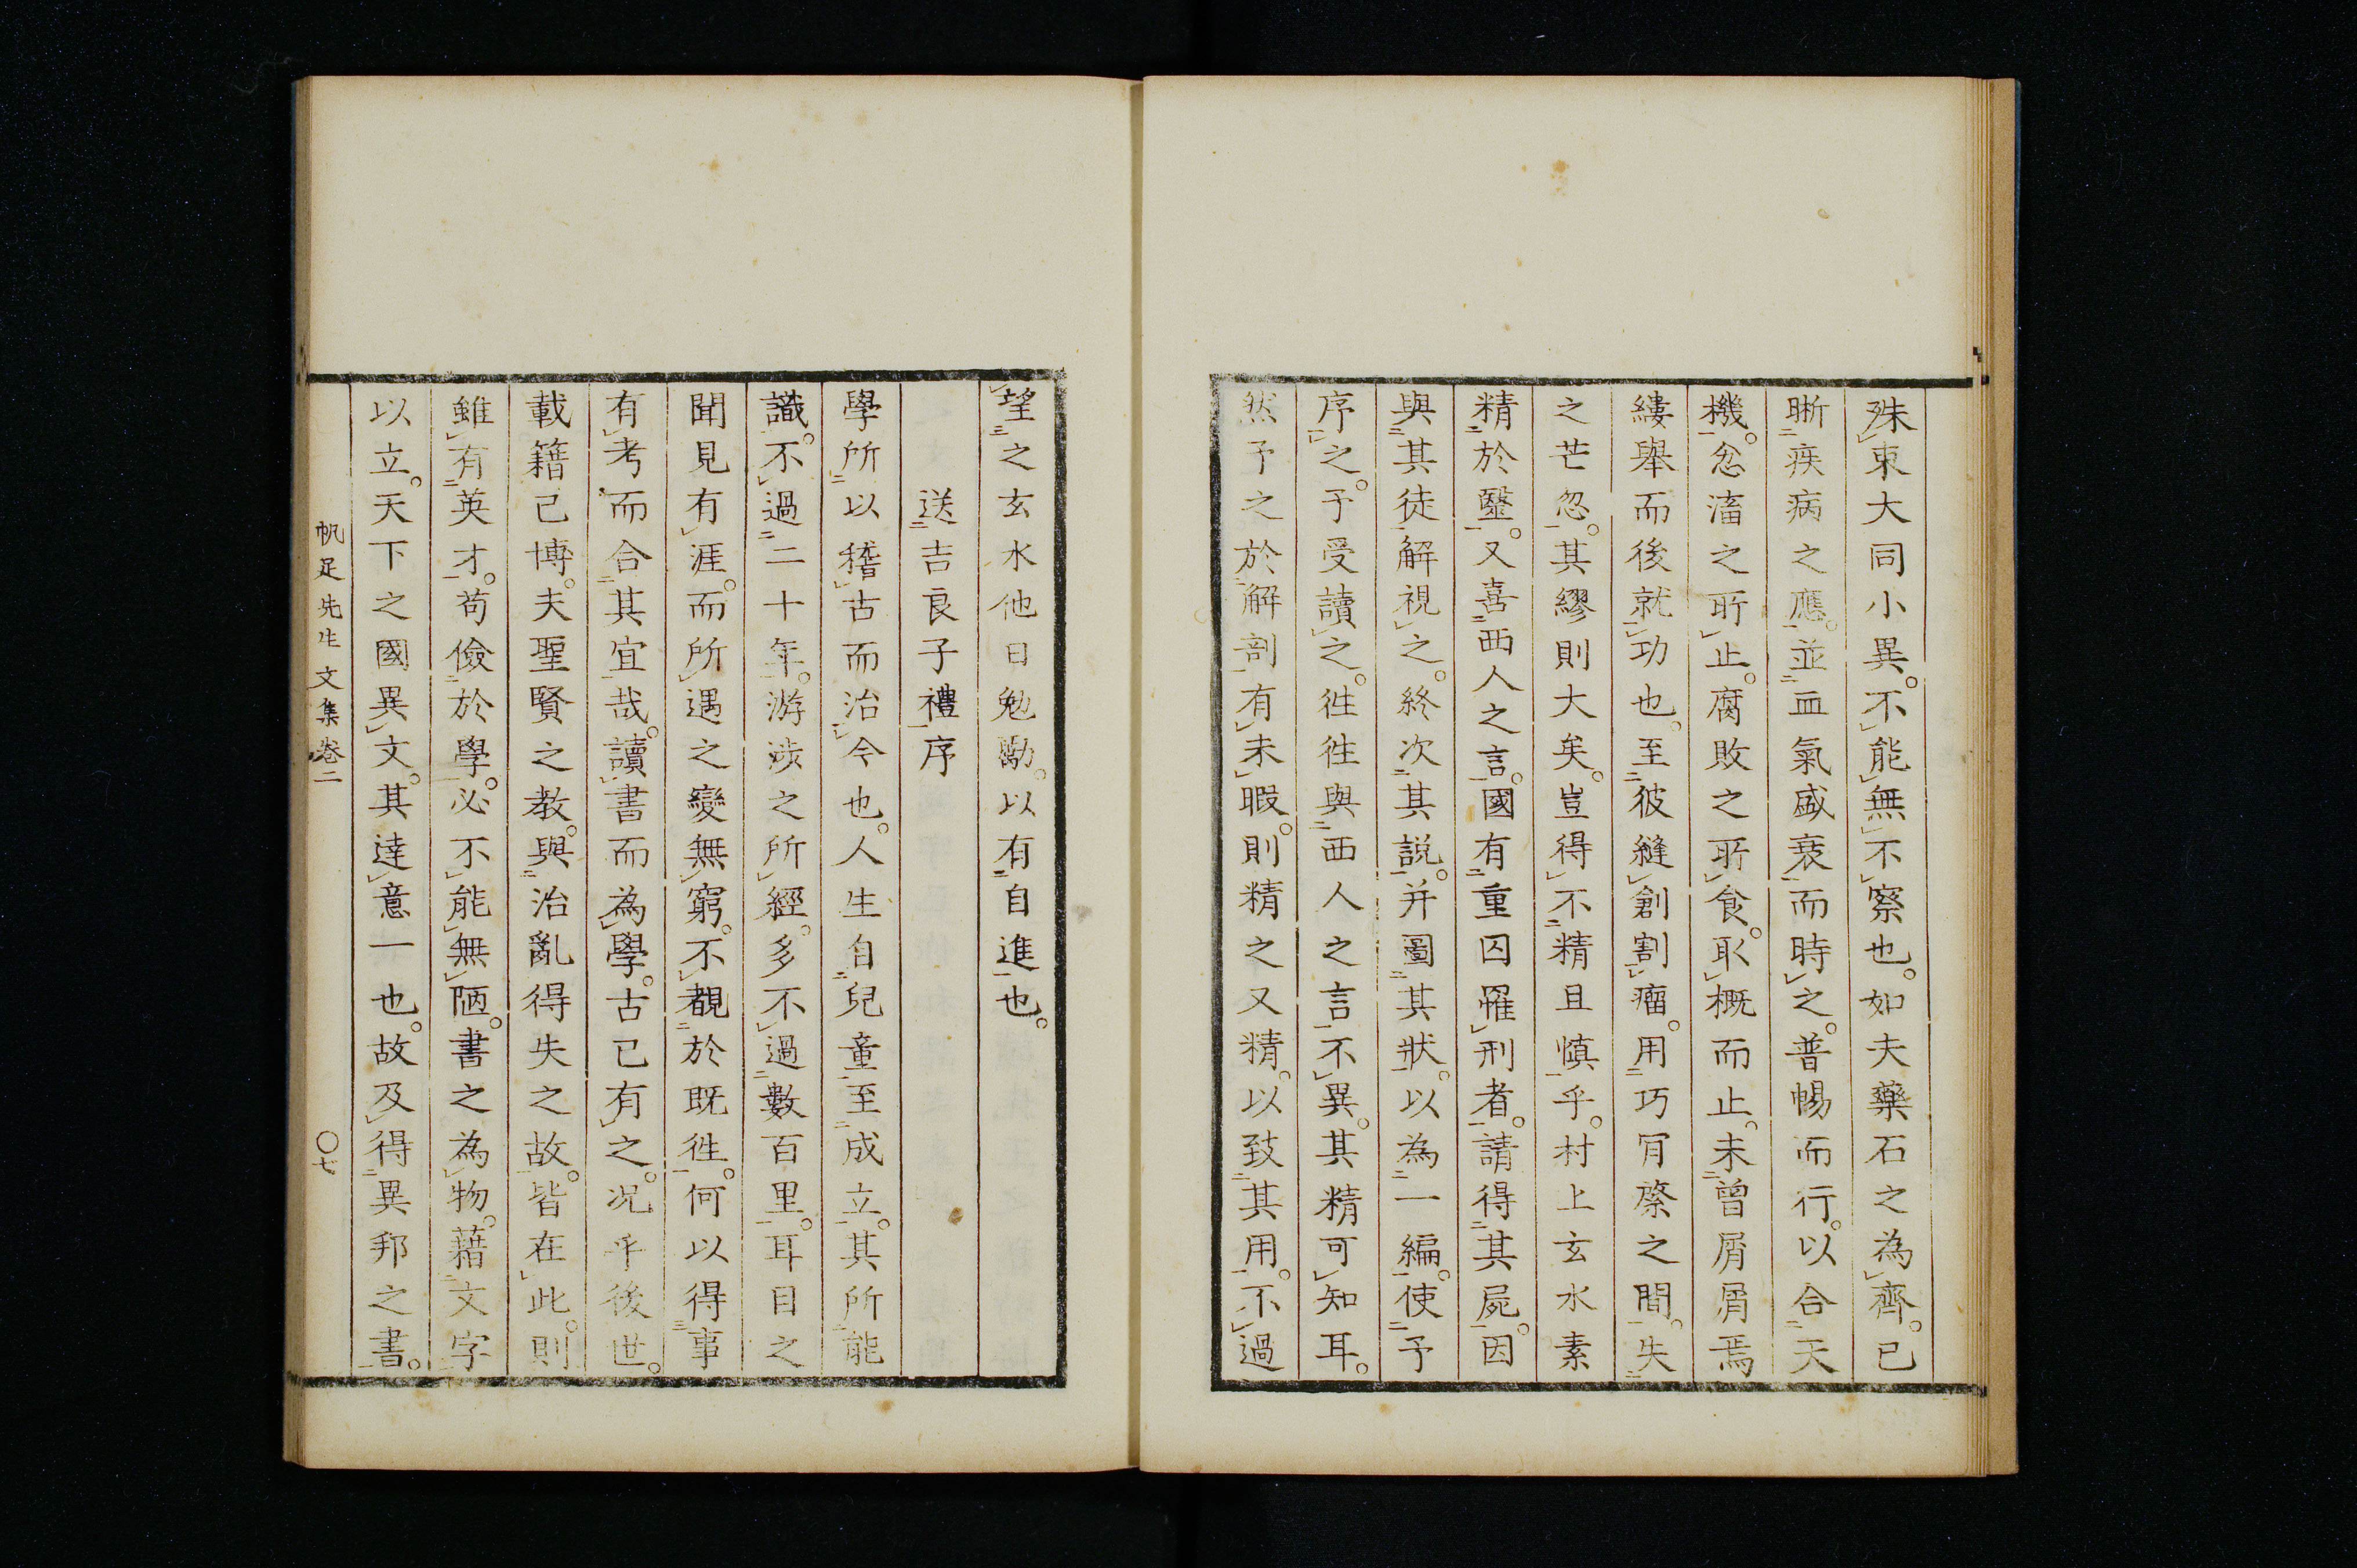 殊東大同小異。不能無不察也。如夫藥石之為齊。已
晣疾病之應。並血氣盛衰而時之。普暢而行。以合天
機。忿滀之所止。腐敗之所食。取概而止。未曾屑屑焉
縷舉而後就功也。至彼縫創割瘤。用巧肎綮之間。失
之芒忽。其繆則大矣。豈得不精且慎乎。村上玄水素
精於毉。又喜西人之言。國有重囚罹刑者。請得其屍。因
與其徒解視之。終次其説。并圖其狀。以為一編。使予
序之。予受讀之。徃徃與西人之言不異。其精可知耳。
然予之於解剖有未暇。則精之又精。以致其用。不過
望之玄水他日勉勵。以有自進也。
送吉良子禮序
學所以稽古而治今也。人生自兒童至成立。其所能
識。不過二十年。游涉之所經。多不過數百里。耳目之
聞見有涯。而所遇之變無窮。不覩於既徃。何以得事
有考而合其宜哉。讀書而為學。古已有之。况乎後世。
載籍已博。夫聖賢之教。與治亂得失之故。皆在此。則
雖有英才。苟儉於學。必不能無陋。書之為物。藉文字
以立。天下之國異文。其達意一也。故及得異邦之書。
帆足先生文集卷二
〇七